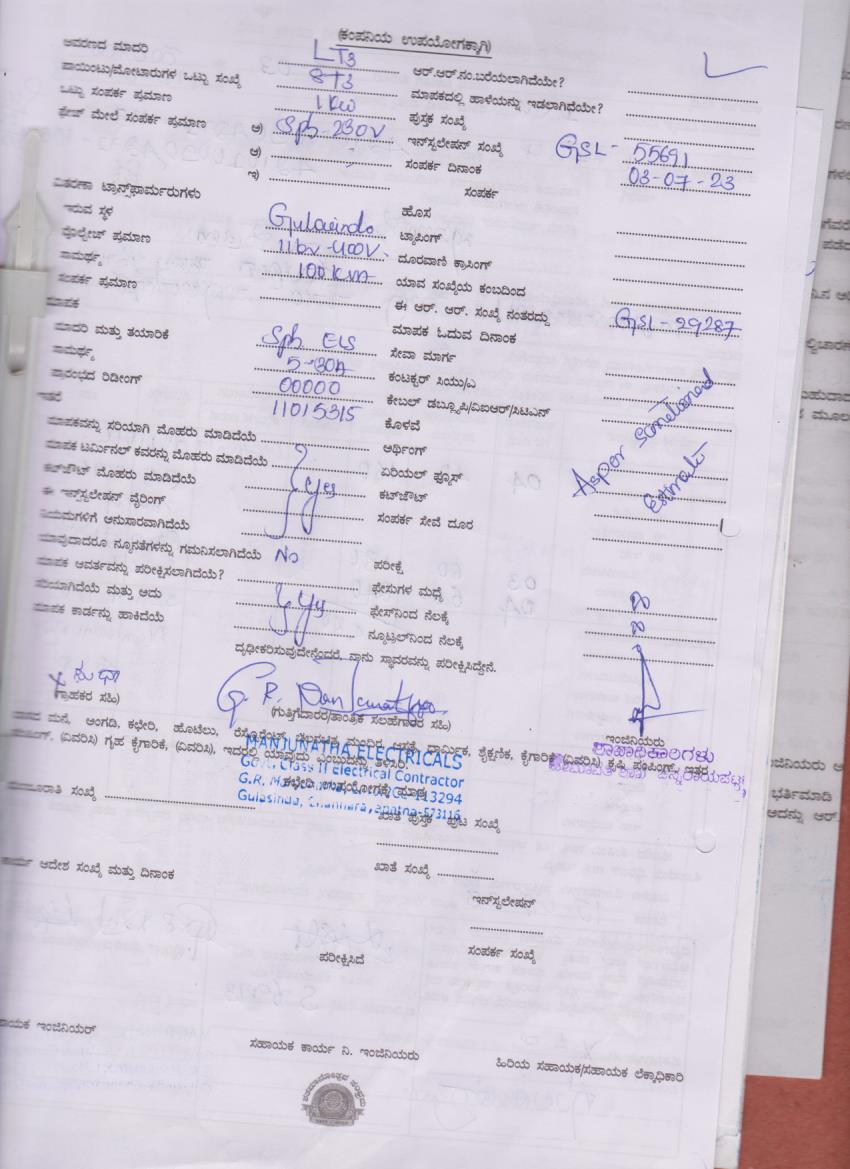 (ಕಂಪನಿಯ ಉಪಯೋಗಕ್ಕಾಗಿ)
ಆವರಣದ ಮಾದರಿ LT3 ಆರ್.ಆರ್.ನಂ.ಬರೆಯಲಾಗಿದೆಯೇ?
ಪಾಯಿಂಟು/ಮೋಟಾರುಗಳ ಒಟ್ಟು ಸಂಖ್ಯೆ ST3 ಮಾಪಕದಲ್ಲಿ ಹಾಳೆಯನ್ನು ಇಡಲಾಗಿದೆಯೇ?
ಒಟ್ಟು ಸಂಪರ್ಕ ಪ್ರಮಾಣ 1 Kw ಪುಸ್ತಕ ಸಂಖ್ಯೆ
ಫೇಜ್ ಮೇಲೆ ಸಂಪರ್ಕ ಪ್ರಮಾಣ ಅ) Sph 230V ಇನ್‌ಸ್ಟಲೇಷನ್ ಸಂಖ್ಯೆ GSL - 55691
ಆ) ಸಂಪರ್ಕ ದಿನಾಂಕ 03-07-23
ಇ) ಸಂಪರ್ಕ
ವಿತರಣಾ ಟ್ರಾನ್ಸ್‌ಫಾರ್ಮರುಗಳು ಹೊಸ
ಇರುವ ಸ್ಥಳ ಟ್ಯಾಪಿಂಗ್
ವೋಲ್ಟೇಜ್ ಪ್ರಮಾಣ 11kv-400V. ದೂರವಾಣಿ ಕ್ರಾಸಿಂಗ್
ಸಾಮರ್ಥ್ಯ 100 KVA ಯಾವ ಸಂಖ್ಯೆಯ ಕಂಬದಿಂದ
ಸಂಪರ್ಕ ಪ್ರಮಾಣ ಈ ಆರ್. ಆರ್. ಸಂಖ್ಯೆ ನಂತರದ್ದು GSL - 29287
ಮಾಪಕ ಮಾಪಕ ಓದುವ ದಿನಾಂಕ
ಮಾದರಿ ಮತ್ತು ತಯಾರಿಕೆ Sph ELS ಸೇವಾ ಮಾರ್ಗ
ಸಾಮರ್ಥ್ಯ 5-30A ಕಂಟಕ್ಟರ್ ಸಿಯು/ಎ
ಪ್ರಾರಂಭದ ರಿಡೀಂಗ್ 00000 ಕೇಬಲ್ ಡಬ್ಲ್ಯೂಪಿ/ವಿಐಆರ್/ಸಿಟಿಎನ್
ಇತರೆ 11015315 ಕೊಳವೆ
ಮಾಪಕವನ್ನು ಸರಿಯಾಗಿ ಮೊಹರು ಮಾಡಿದೆಯೆ ಅರ್ಥಿಂಗ್
ಮಾಪಕ ಟರ್ಮಿನಲ್ ಕವರನ್ನು ಮೊಹರು ಮಾಡಿದೆಯೆ ಏರಿಯಲ್ ಫ್ಯೂಸ್
ಕಟ್‌ಔಟ್ ಮೊಹರು ಮಾಡಿದೆಯೆ yes ಕಟ್‌ಔಟ್
ಈ ಇನ್‌ಸ್ಟಲೇಷನ್ ವೈರಿಂಗ್ ಸಂಪರ್ಕ ಸೇವೆ ದೂರ
Estimate
ನಿಯಮಗಳಿಗೆ ಅನುಸಾರವಾಗಿದೆಯೆ
ಯಾವುದಾದರೂ ನ್ಯೂನತೆಗಳನ್ನು ಗಮನಿಸಲಾಗಿದೆಯೆ No ಪರೀಕ್ಷೆ
ಮಾಪಕ ಆವರ್ತವನ್ನು ಪರೀಕ್ಷಿಸಲಾಗಿದೆಯೆ? ಫೇಸುಗಳ ಮಧ್ಯೆ
ಸರಿಯಾಗಿದೆಯೆ ಮತ್ತು ಅದು yes ಫೇಸ್‌ನಿಂದ ನೆಲಕ್ಕೆ
ಮಾಪಕ ಕಾರ್ಡನ್ನು ಹಾಕಿದೆಯೆ ನ್ಯೂಟ್ರಲ್‌ನಿಂದ ನೆಲಕ್ಕೆ
ದೃಢೀಕರಿಸುವುದೇನೆಂದರೆ, ನಾನು ಸ್ಥಾವರವನ್ನು ಪರೀಕ್ಷಿಸಿದ್ದೇನೆ.
x ಸುಧಾ G. R.
(ಗ್ರಾಹಕರ ಸಹಿ) (ಗುತ್ತಿಗೆದಾರರ/ತಾಂತ್ರಿಕ ಸಲಹೆಗಾರರ ಸಹಿ) ಇಂಜಿನಿಯರು
ಮನೆ, ಅಂಗಡಿ, ಕಛೇರಿ, ಹೊಟೆಲು, ಧಾರ್ಮಿಕ, ಶೈಕ್ಷಣಿಕ, ಕೈಗಾರಿಕೆ (ವಿವರಿಸಿ) ಕೃಷಿ ಪಂಪಿಂಗ್, ಇತರ
(ವಿವರಿಸಿ) ಗೃಹ ಕೈಗಾರಿಕೆ, (ವಿವರಿಸಿ), ಇದರಲ್ಲಿ ಯಾವುದು ಎಂಬುದನ್ನು ತಿಳಿಸಿರಿ.
MANJUNATHA ELECTRICALS
Class II electrical Contractor
G.R. 113294
573116
ಕಛೇರಿ ಉಪಯೋಗಕ್ಕೆ ಮಾತ್ರ
ಸಂಖ್ಯೆ ಖಾತೆ ಪುಸ್ತಕ ಪುಟ ಸಂಖ್ಯೆ
ಕಾರ್ಯ ಆದೇಶ ಸಂಖ್ಯೆ ಮತ್ತು ದಿನಾಂಕ ಖಾತೆ ಸಂಖ್ಯೆ
ಇನ್‌ಸ್ಟಲೇಷನ್
ಪರೀಕ್ಷಿಸಿದೆ ಸಂಪರ್ಕ ಸಂಖ್ಯೆ
ಇಂಜಿನಿಯರ್ ಸಹಾಯಕ ಕಾರ್ಯ ನಿ. ಇಂಜಿನಿಯರು ಹಿರಿಯ ಸಹಾಯಕ/ಸಹಾಯಕ ಲೆಕ್ಕಾಧಿಕಾರಿ